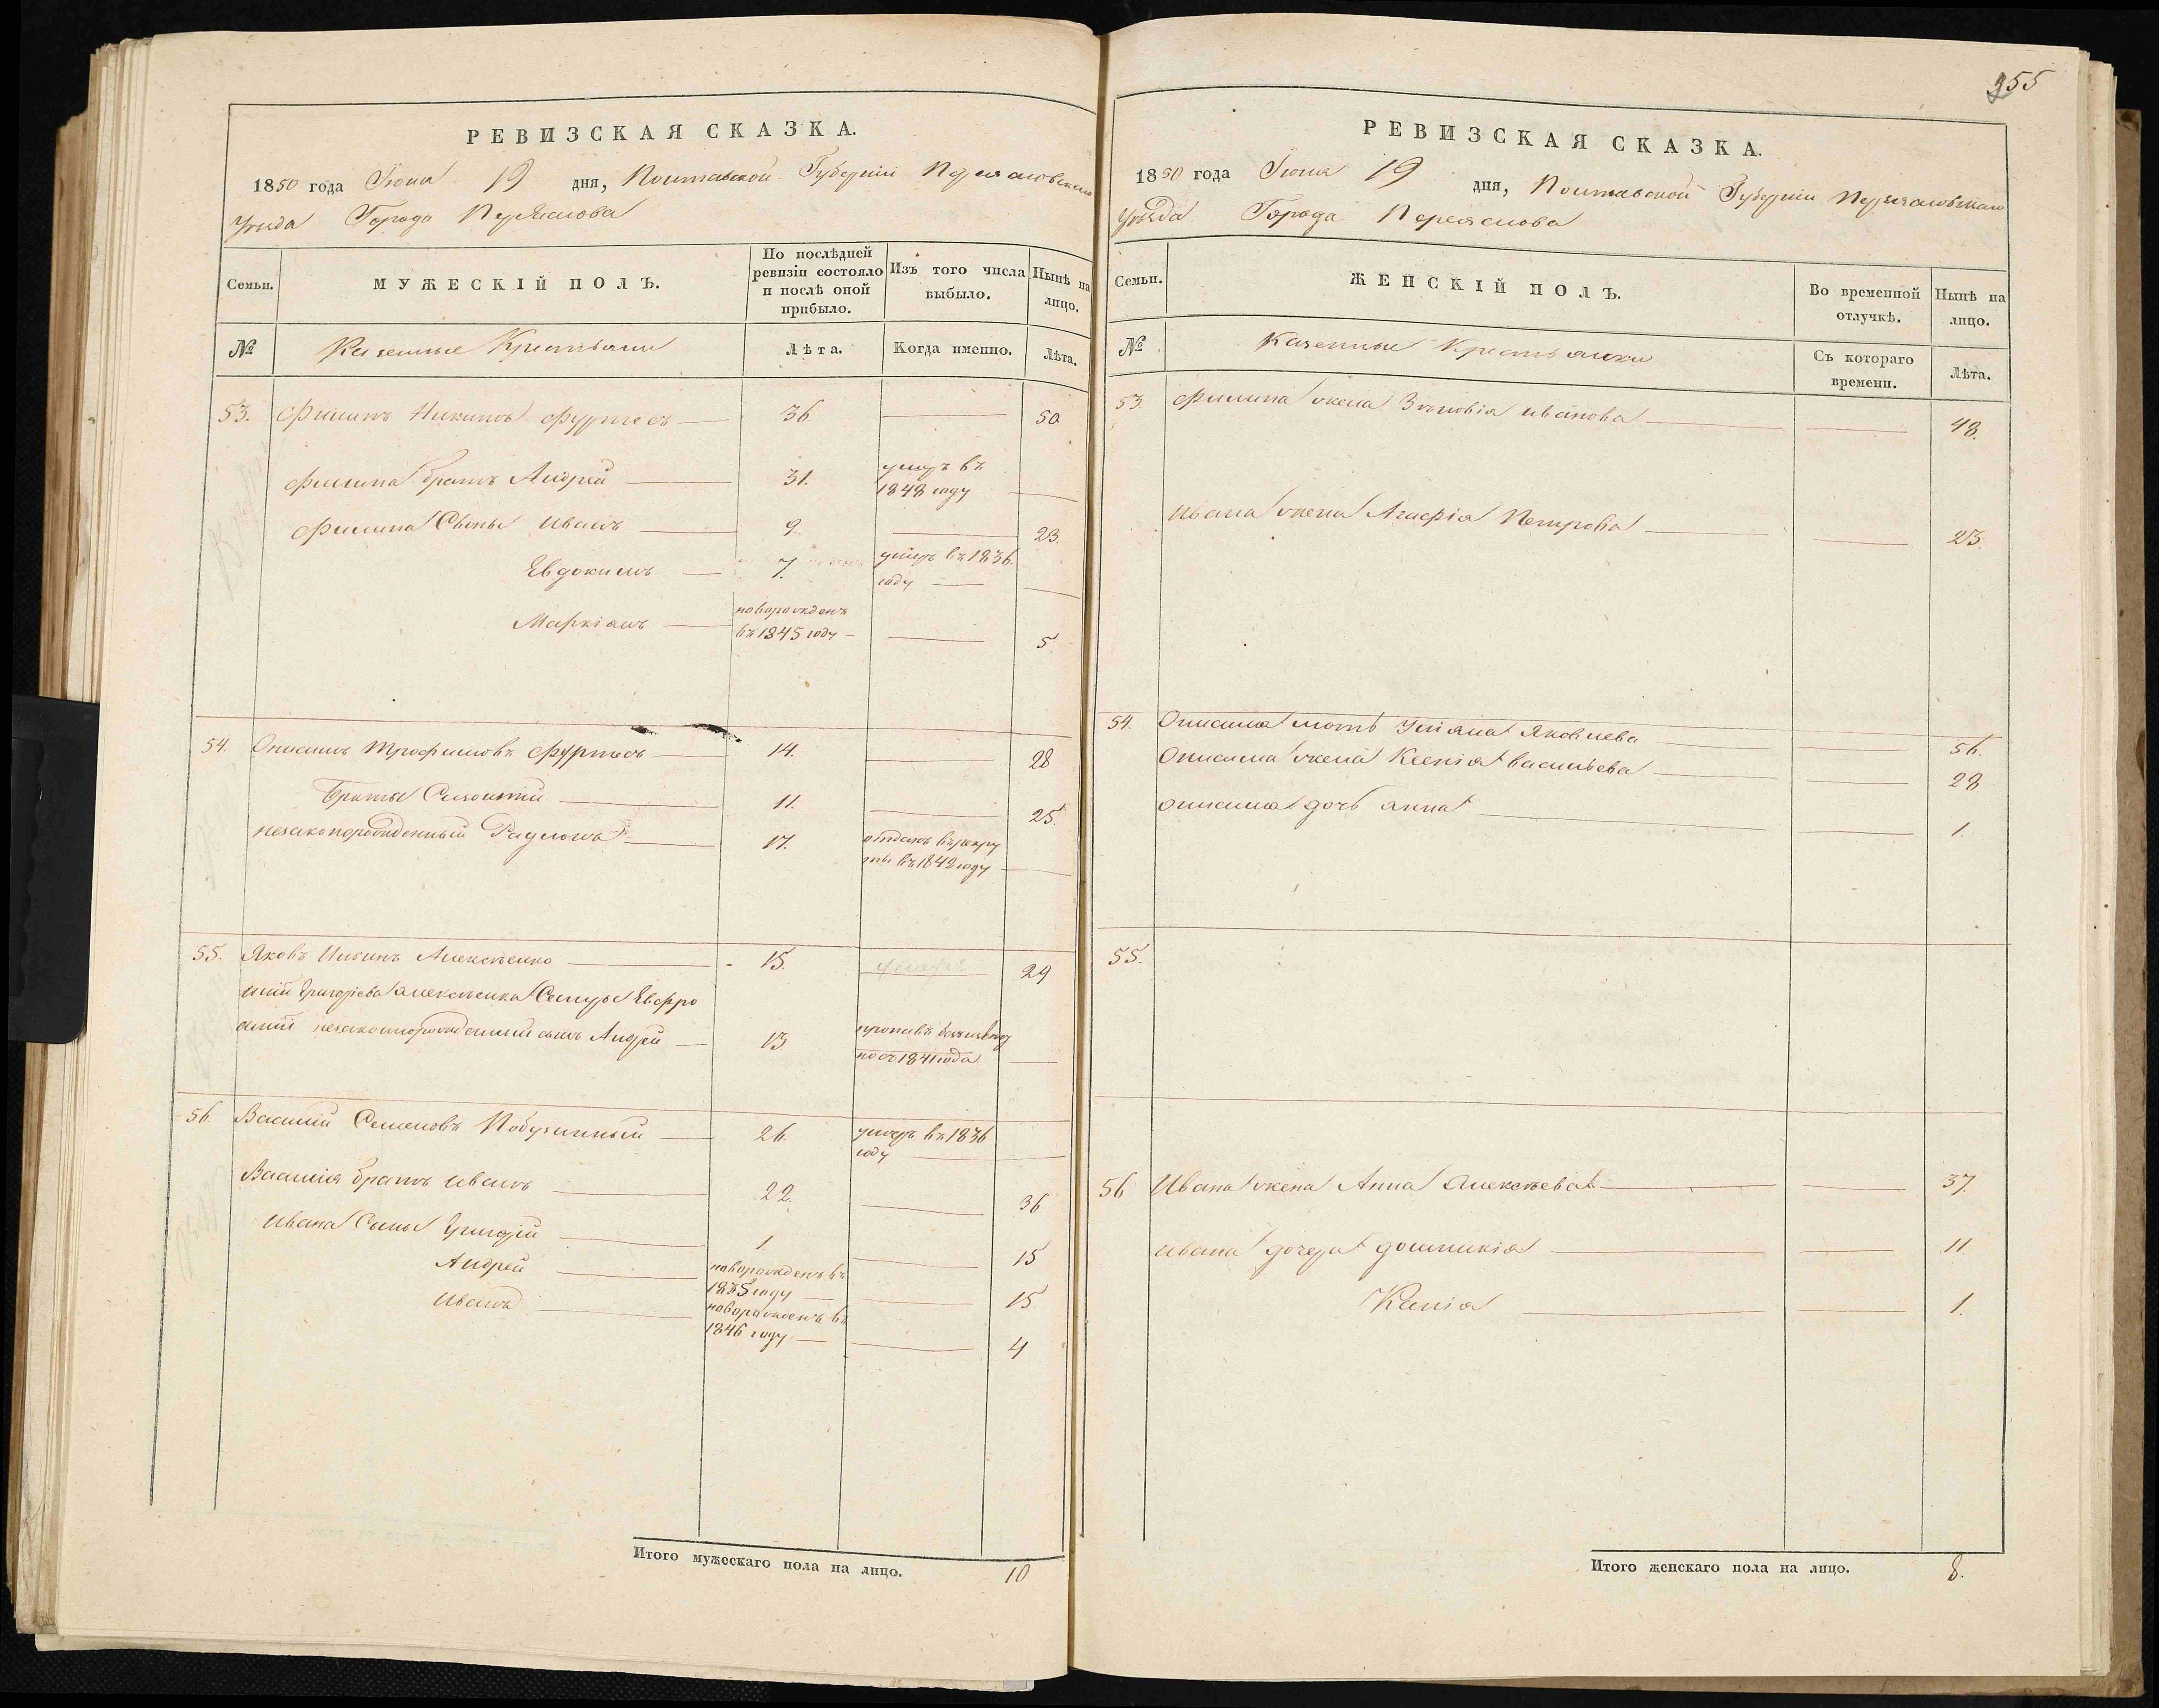 РЕВИЗСКАЯ СКАЗКА.
1850 года Іюня 19 дня, Полтавской Губерніи Переяславскаго
Уѣзда Города Переяслова
Семьи.
МУЖЕСКІЙ ПОЛЪ.
По послѣдней ревизіи состояло и послѣ оной прибыло.
Изъ того числа выбыло.
Нынѣ на лицо.
№
Казенные Крестьяне
Лѣта.
Когда именно.
Лѣта.
53. Филипъ Никитовъ Фуртесъ 36. 50
Филипа братъ Андрей 31. умеръ въ
1848 году
Филипа Сыны Иванъ 9. 23.
Евдокимъ 7. умеръ въ 1836.
году
Маркіанъ новорожденъ
въ 1845 году 5.
54. Онисимъ Трофимовъ Фуртесъ 14. 28
Братья 11. 25.
незаконорожденный Радионъ 17. отданъ въ рекру
ты въ 1842 году
55. Яковъ Ильинъ Алексѣенко 15. 29
Илій Григорьева Алексѣенка Сестры Евфро
синіи незаконнорожденный сынъ Андрей 13. пропавъ
но съ 1841 года
56. Василій Семеновъ 26. умеръ въ 1836
году
Василія братъ Иванъ 22. 36
Ивана Сыны Григорій 1. 15
Андрей новорожденъ въ
1835 году 15
Иванъ новорожденъ въ
1846 году 4
Итого мужескаго пола на лицо. 10
355
РЕВИЗСКАЯ СКАЗКА.
1850 года Іюня 19 дня, Полтавской Губерніи Переяславскаго
Уѣзда Города Переяслова
Семьи.
ЖЕНСКІЙ ПОЛЪ.
Во временной отлучкѣ.
Нынѣ на лицо.
№
Казенные Крестьянки
Съ котораго времени.
Лѣта.
53. Филипа жена Зѣновія Иванова 48.
Ивана жена Агафія Петрова 23.
54. Онисима мать Уліяна Яковлева 56.
Онисима жена Ксенія Васильева 28
Онисима дочь Анна 1.
55.
56 Ивана жена Анна Алексѣева 37.
Ивана дочери Домникія 11.
Ксенія 1.
Итого женскаго пола на лицо. 8.